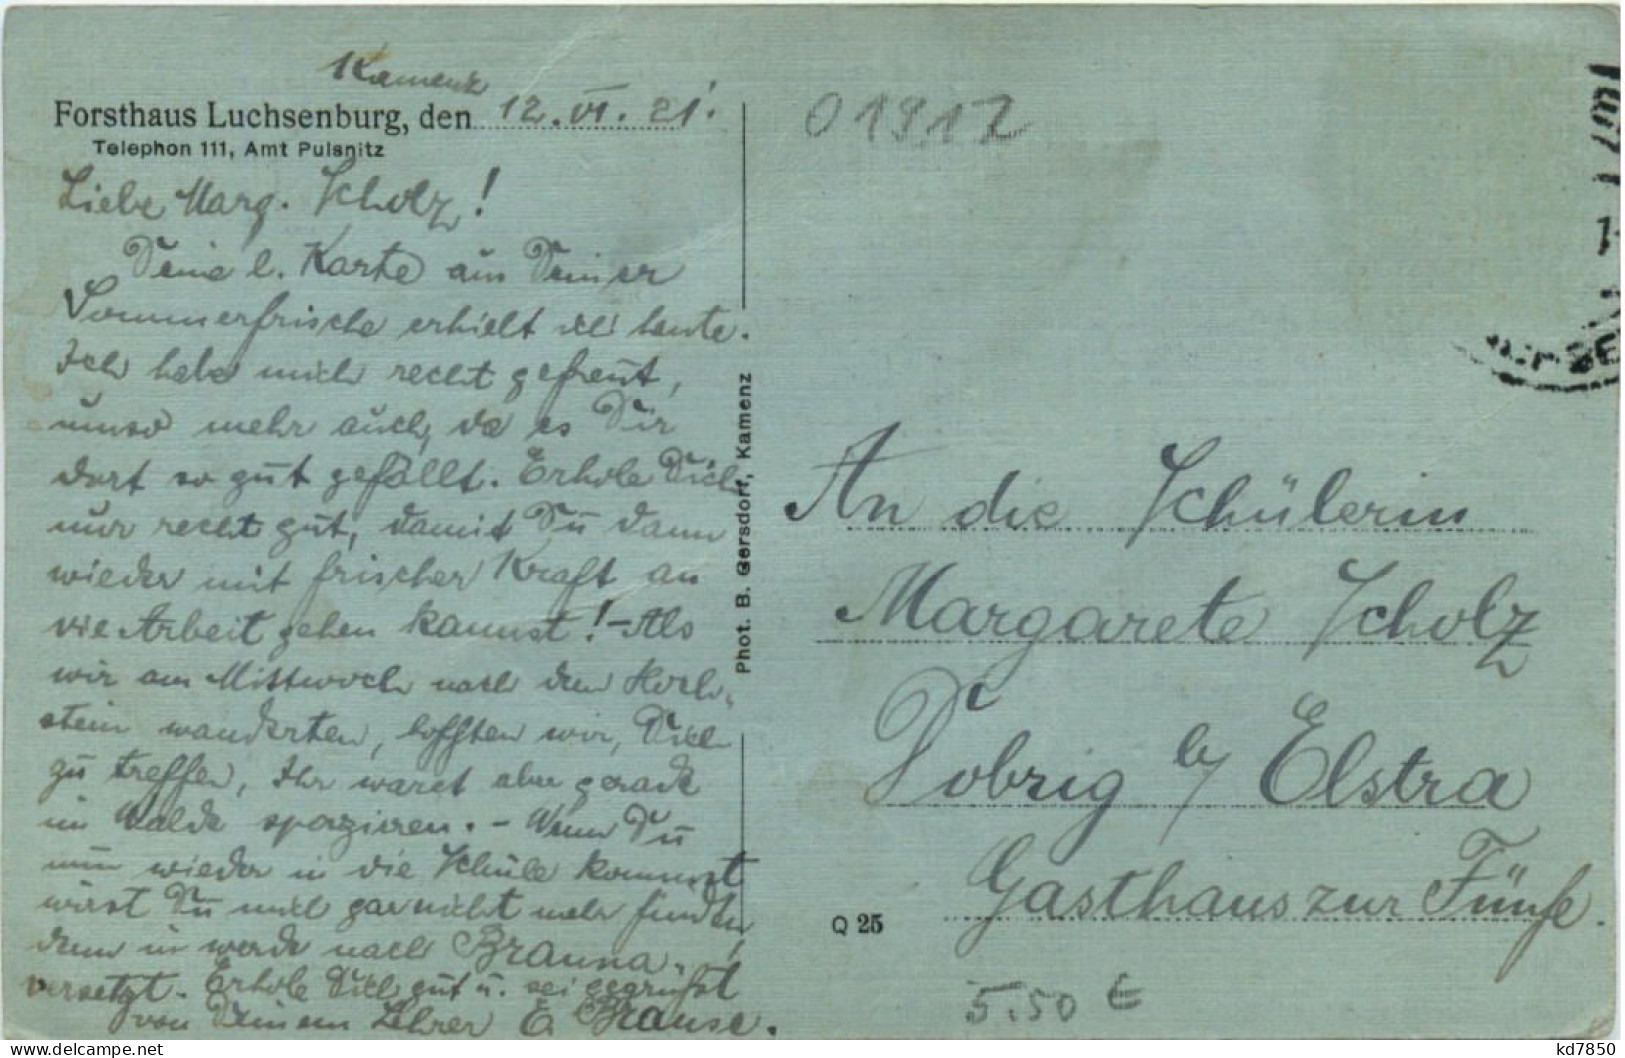 Kamenz
Forsthaus Luchsenburg, den 12. VI. 21.
Telephon 111, Amt Pulsnitz
Liebe Marg. Scholz!
Deine l. Karte aus Deiner
Sommerfrische erhielt ich heute.
Ich habe mich recht gefreut,
umso mehr auch, da es Dir
dort so gut gefällt. Erhole Dich
nur recht gut, damit Du dann
wieder mit frischer Kraft an
die Arbeit gehen kannst! - Als
wir am Mittwoch nach dem Hoch-
stein wanderten, hofften wir, Dich
zu treffen, Ihr waret aber gerade
im Walde spazieren. - Wenn Du
nun wieder in die Schule kommst
wirst Du mich garnicht mehr finden,
denn ich werde nach Brauna
versetzt. Erhole Dich gut u. sei gegrüßt
von Deinem Lehrer E. Brause.
Phot. B. Gersdorf, Kamenz
01917
An die Schülerin
Margarete Scholz
Dobrig b/ Elstra
Gasthaus zur Fünfe.
Q 25
5.50 €
delcampe.net
kd7850